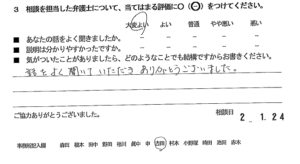 3 相談を担当した弁護士について、当てはまる評価に○(○)をつけてください。
大変よい よい 普通 やや悪い 悪い
■ あなたの話をよく聞きましたか。
■ 説明は分かりやすかったですか。
■ 気がついたことがありましたら、どのようなことでも結構ですからお書きください。
話をよく聞いていただきありがとうございました。
ご協力ありがとうございました。
相談日 2.1.24
事務局記入欄 吉田